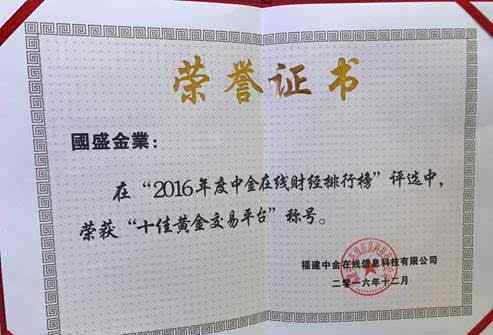 荣誉证书
國盛金業：
在“2016年度中金在线财经排行榜”评选中，
荣获“十佳黄金交易平台”称号。
福建中金在线信息科技有限公司
二零一六年十二月